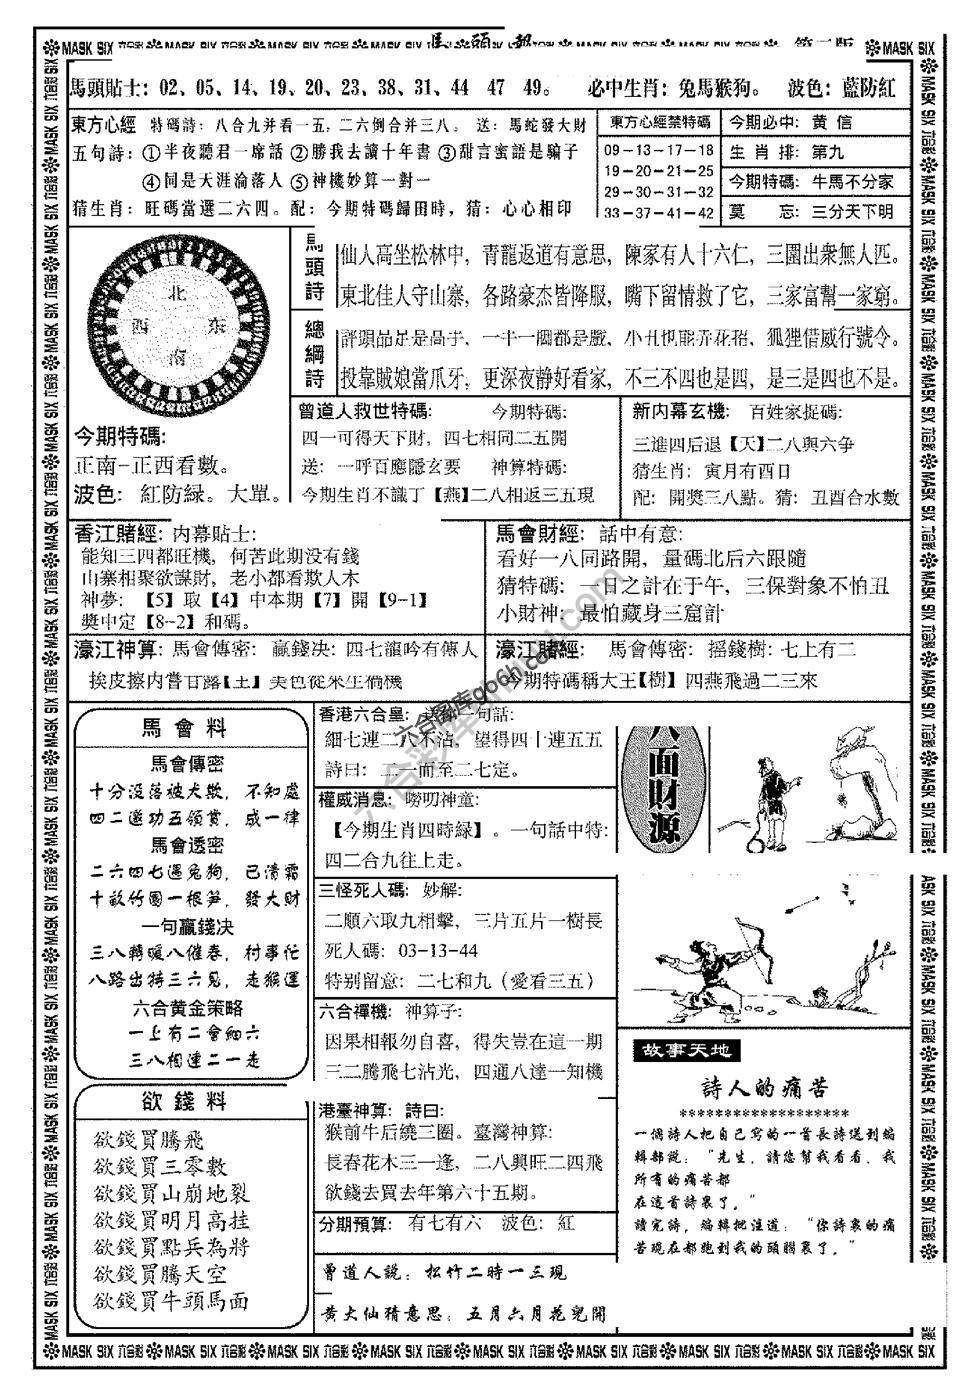 馬頭報
第二版
MASK SIX 六合彩
馬頭貼士: 02、05、14、19、20、23、38、31、44 47 49。 必中生肖: 兔馬猴狗。 波色: 藍防紅
東方心經 特碼詩: 八合九并看一五, 二六倒合并三八。 送: 馬蛇發大財
五句詩: ①半夜聽君一席話 ②勝我去讀十年書 ③甜言蜜語是騙子
④同是天涯淪落人 ⑤神機妙算一對一
猜生肖: 旺碼當選二六四。配: 今期特碼歸田時, 猜: 心心相印
東方心經禁特碼
09-13-17-18
19-20-21-25
29-30-31-32
33-37-41-42
今期必中: 黄 信
生 肖 排: 第九
今期特碼: 牛馬不分家
莫 忘: 三分天下明
北
西 东
南
今期特碼:
正南-正西看數。
波色: 紅防緑。大單。
馬頭詩
仙人高坐松林中, 青龍返道有意思, 陳家有人十六仁, 三園出衆無人匹。
東北佳人守山寨, 各路豪杰皆降服, 嘴下留情救了它, 三家富幫一家窮。
總綱詩
評頭品足是高手, 一半一個都是戲, 小丑也能弄花招, 狐狸借威行號令。
投靠賊娘當爪牙, 更深夜静好看家, 不三不四也是四, 是三是四也不是。
曾道人救世特碼: 今期特碼:
四一可得天下財, 四七相同二五開
送: 一呼百應隱玄要 神算特碼:
今期生肖不識丁【燕】二八相返三五現
新内幕玄機: 百姓家捉碼:
三進四后退【天】二八與六争
猜生肖: 寅月有酉日
配: 開獎三八點。猜: 丑酉合水數
香江賭經: 内幕貼士:
能知三四都旺機, 何苦此期没有錢
山寨相聚欲謀財, 老小都看欺人木
神夢: 【5】取【4】中本期【7】開【9-1】
獎中定【8-2】和碼。
馬會財經: 話中有意:
看好一八同路開, 量碼北后六跟隨
猜特碼: 一日之計在于午, 三保對象不怕丑
小財神: 最怕藏身三窟計
濠江神算: 馬會傳密: 贏錢决: 四七龍吟有傳人
挨皮擦内嘗甘露【土】美色從來生禍機
濠江賭經: 馬會傳密: 摇錢樹: 七上有二
今期特碼稱大王【樹】四燕飛過二三來
馬會料
馬會傳密
十分没落被犬欺, 不知處
四二邀功五領賞, 成一律
馬會透密
二六四七遇兔狗, 已清霜
十畝竹園一根笋, 發大財
一句贏錢决
三八轉暖八催春, 村事忙
八路出特三六見, 走猴運
六合黄金策略
一上有二會細六
三八相連二一走
欲錢料
欲錢買騰飛
欲錢買三零數
欲錢買山崩地裂
欲錢買明月高挂
欲錢買點兵為將
欲錢買騰天空
欲錢買牛頭馬面
香港六合皇: 一句話:
細七連二八不沾, 望得四十連五五
詩曰: 二一而至二七定。
權威消息: 嘮叨神童:
【今期生肖四時緑】。一句話中特:
四二合九往上走。
三怪死人碼: 妙解:
二順六取九相擊, 三片五片一樹長
死人碼: 03-13-44
特别留意: 二七和九 (愛看三五)
六合禪機: 神算子:
因果相報勿自喜, 得失豈在這一期
三二騰飛七沾光, 四通八達一知機
港臺神算: 詩曰:
猴前牛后繞三圈。臺灣神算:
長春花木三一逢, 二八興旺二四飛
欲錢去買去年第六十五期。
分期預算: 有七有六 波色: 紅
曾道人説: 松竹二時一三現
黄大仙猜意思: 五月六月花兒開
八面財源
故事天地
詩人的痛苦
*******************
一個詩人把自己寫的一首長詩送到編
輯部説: “先生, 請您幫我看看, 我
所有的痛苦都
在這首詩裏了。”
讀完詩, 編輯批注道: “你詩裏的痛
苦現在都跑到我的頭腦裏了。”
六合彩图库go6h.com